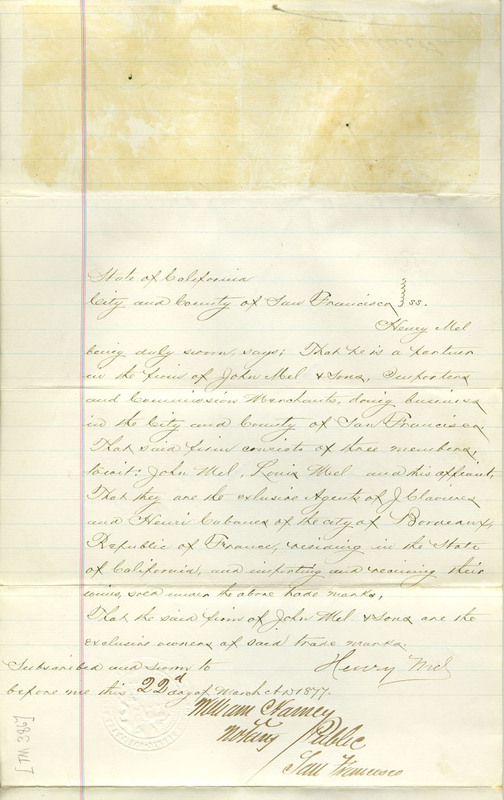 State of California
City and County of San Francisco } ss.
Henry Mel
being duly sworn, says; That he is a partner
in the firm of John Mel & Sons, Importers
and Commission Merchants, doing business
in the City and County of San Francisco
That said firm consists of three members,
to wit: John Mel, Louis Mel and this affiant,
That they are the exclusive Agents of J.
and Henri Cabanes of the city of Bordeaux,
Republic of France, residing in the State
of California, and importing and receiving their
wines, sold under the above trade marks,
That the said firm of John Mel & Sons are the
exclusive owners of said trade marks.
Henry Mel
Subscribed and sworn to
before me this 22d day of March A.D. 1877.
William Harney
Notary Public
San Francisco
[TM 386]